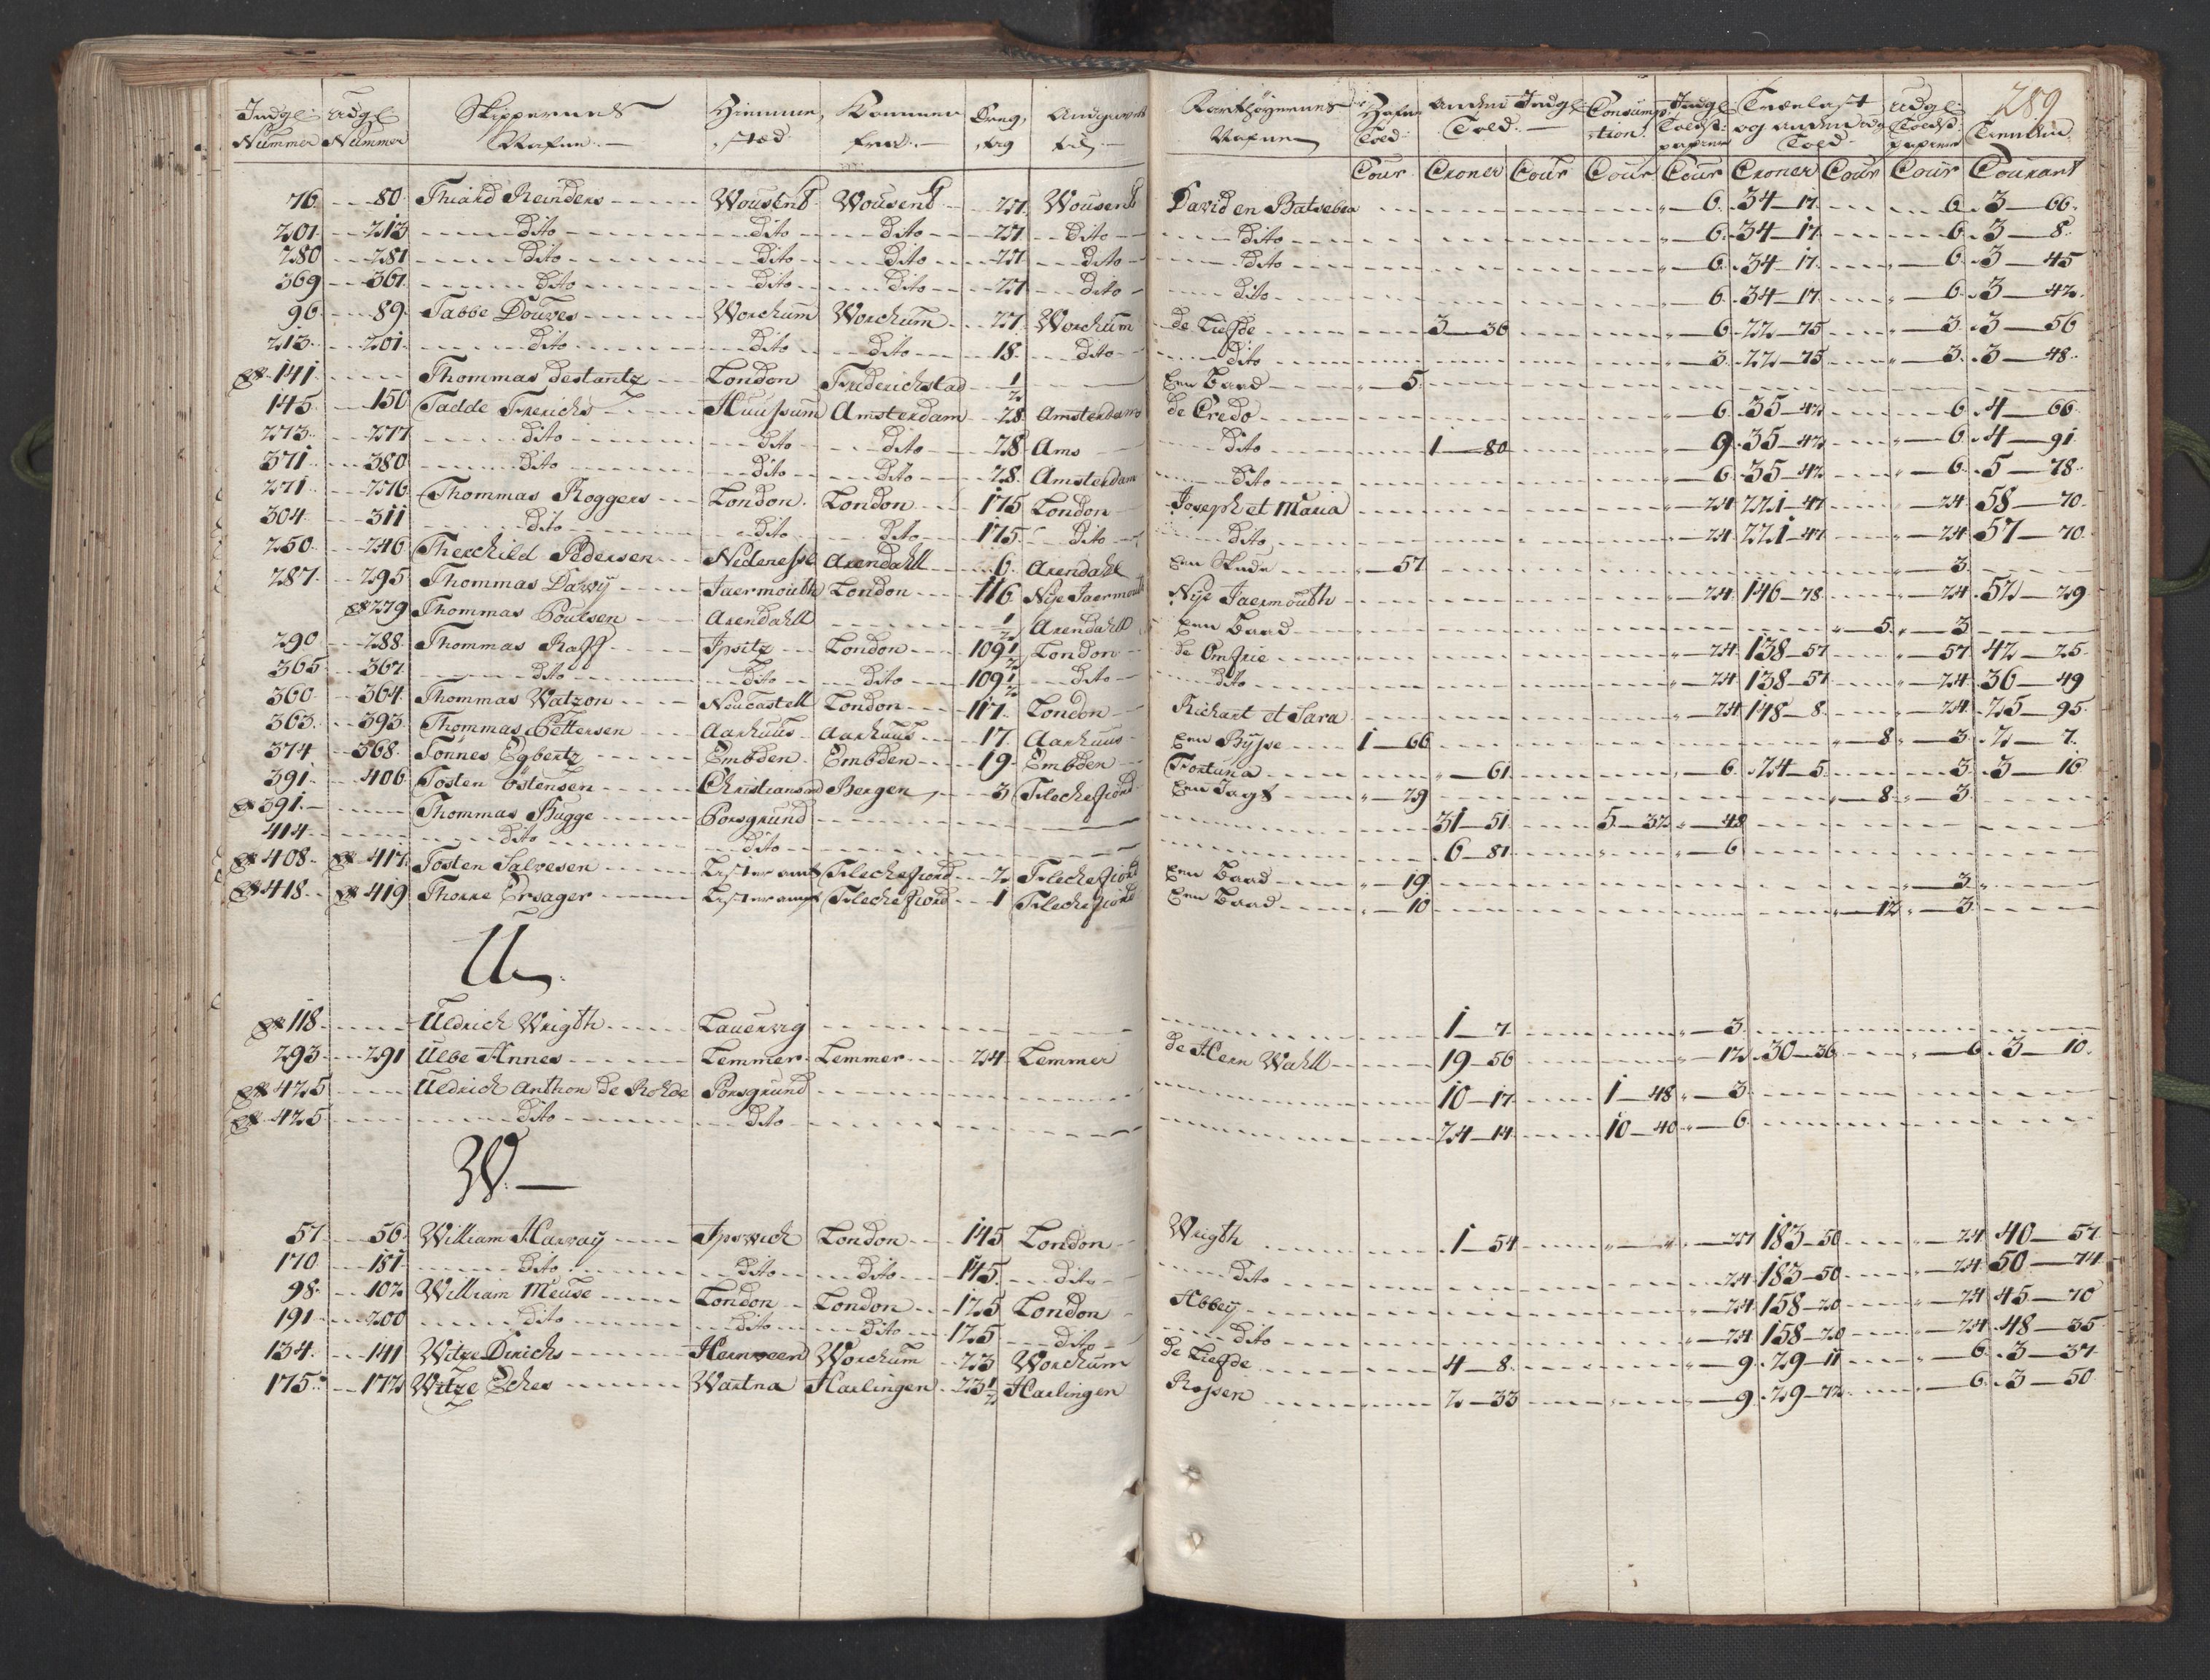 Indgl: Udgl Skippernes Hiemme, Kommer Dreg, Angiever
Nummer Nummer Nafne. — sted fra. — tig til. —
76 80 Thiard Reinders Wousend Wousend 27 Wousend
201 213 dito dito dito 27 dito
280 281 dito dito dito 27 dito
369 361 dito dito dito 27 dito
96 89 Tabbe Douwes Worchum Worchum 27 Worchum
213 201 dito dito dito 18 dito
141 Thommas Destantz London Friderichstad 1/2
145 150 Tadde Frerichs Huussum Amsterdam 28 Amsterdam
273 277 dito dito dito 28 Ams
371 380 dito dito dito 28 Amsterdam
271 276 Thommas Roggers London London 175 London
304 311 dito dito dito 175 dito
250 246 Therchild Pedersen Nedenesse Arendahll 6 Arendahl
287 295 Thommas Davvij Jaermouth London 116 Nije Jaermouth
279 Thommas Poulsen Arendahll 1/2 Arendahll
290 288 Thommas Raff Ipsitz London 109 1/2 London
365 367 dito dito dito 109 1/2 dito
360 364 Thommas Watzon Neucastell London 117 London
363 393 Thommas Pettersen Aarhuus Aarhuus 17 Aarhuus
374 368 Tonnes Egbertz Embden Embden 19 Embden
391 406 Tosten Östensen Christiansand Bergen 3 Flechefiord
391 Thommas Bugge Porsgrund
414 dito dito
408 417 Tosten Salvesen Lister amt Flechefiord 2 Flechefiord
418 419 Thorre Ersager Lister amt Flechefiord 1 Flechefiord
U
118 Uldrich Wrigth Lauervig
293 291 Ulbe Annes Lemmer Lemmer 24 Lemmer
425 Uldrich Anthon de Rohde Porsgrund
425 dito dito
W. —
57 56 William Harvaij Ipswich London 145 London
170 181 dito dito dito 145 dito
98 102 William Meuse London London 125 London
191 200 dito dito dito 125 dito
134 141 Witze Dirichs Hernveen Worchum 23 Worchum
175 172 Witze Eches Wartna Harlingen 23 1/2 Harlingen
289
Farthøyernes Hafne Anden Indgl. Consump Indgl: Trælast Udgl:
Nafne Told: Told. — tion. Toldst: og anden Udg Toldst: Tienden
papiir Told papiir
Cour Croner Cour Cour Cour Croner Cour Cour Courant
David en Batseba 6. 34—17. 6. 3—66.
dito 6. 34—17. 6. 3—8.
dito 6. 34—17. 6. 3—45
dito 6. 34—17. 6. 3—42.
de Liefde 3—36 6. 22—75 3. 3—56
dito 3. 22—75 3. 3—48.
Een Baad 5.
de Credo 6. 35—42 6. 4—66.
dito 1—80 9. 35—42 6. 4—91
dito 6. 35—42 6. 5—78.
Joseph et Maria 24 221—47 24 58—70.
dito 24 221—47 24 57—70.
Een Skude 57 3.
Nije Jaermouth 24 146—78 24. 52—29
Een Baad 5. 3.
de Omfrie 24. 138—57 57 42—25.
dito 24. 138—57 24. 36—49
Richart et Sara 24 148—8. 24. 25—95.
Een Bijsse 1—66 8. 3. 2—7.
Fortuna 61. 6. 24—5. 3. 3—16
Een Jagt 29 8. 3.
31—51. 5—32 48
6—81. 6
Een Baad 19. 3.
Een Baad 10 12. 3.
1—7. 3.
de Hern Wahll 19—56 12. 30—36 6. 3—10.
10—17. 1—48. 3.
24—14. 10—40. 6.
Wrigth 1—54 27 183—50 24 40—57.
dito 24 183—50. 24 50—74
Abbeij 24 158—20 24 45—70
dito 24. 158—20 24. 48—35.
de Liefde 4—8. 9. 29—11 6. 3—37.
Rosen 2—33 9. 29—72. 6. 3—50.